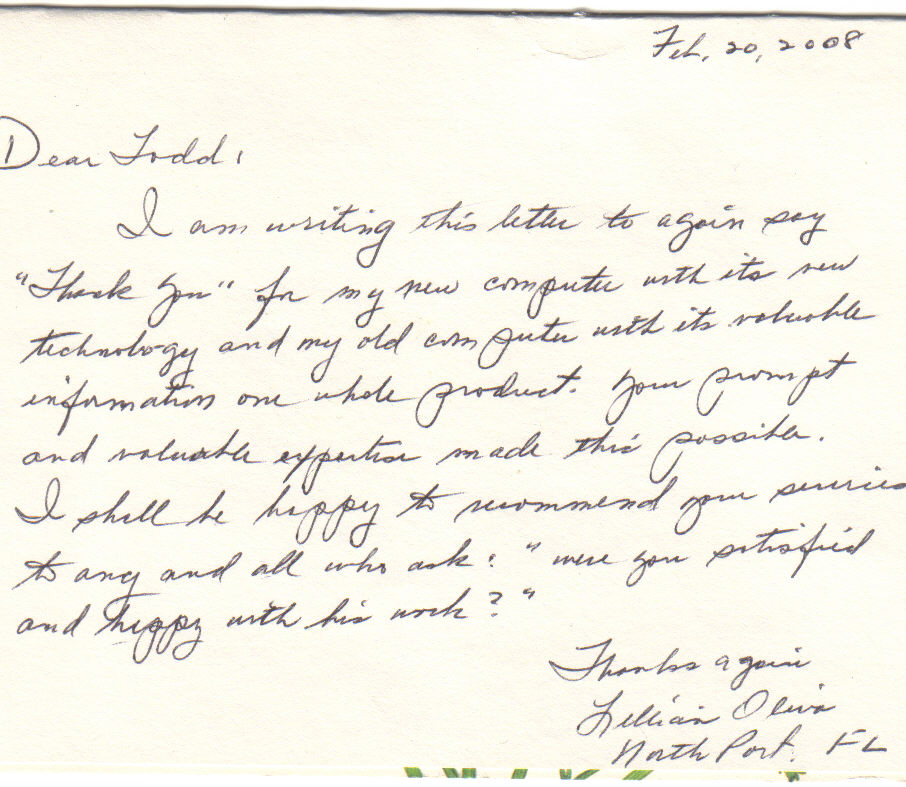 Feb. 20, 2008
Dear Todd,
I am writing this letter to again say
"Thank You" for my new computer with its new
technology and my old computer with its valuable
information one whole product. Your prompt
and valuable expertise made this possible.
I shall be happy to recommend your services
to any and all who ask: "were you satisfied
and happy with his work?"
Thanks again
Lillian Oliva
North Port, FL